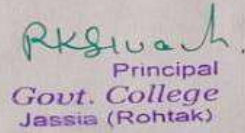 RKSiwach.
Principal
Govt. College
Jassia (Rohtak)